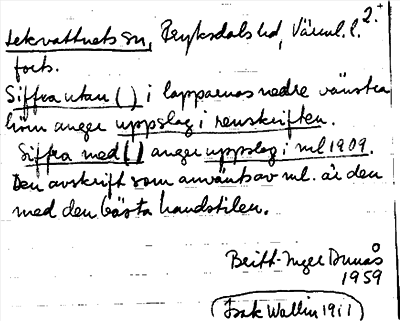 Lekvattnets sn, Fryksdals hd, Värml. l. 2.+
forts.
Siffra utan ( ) i lapparnas nedre vänstra
hörn anger uppslag i renskriften.
Siffra med ( ) anger uppslag i ml 1909.
Den avskrift som använts av ml. är den
med den bästa handstilen.
Britt-Inger Dunås
1959
Isak Wallin 1911